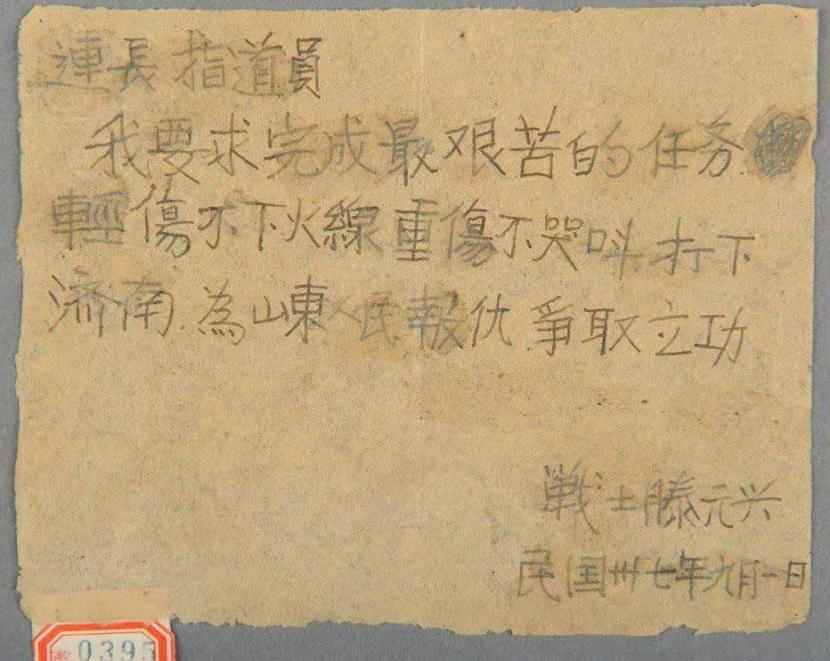 連長指道員
我要求完成最艰苦的任务
輕傷不下火線重傷不哭呌打下
济南.為山東人民報仇爭取立功
戰士滕元兴
民国卅七年九月一日
0395